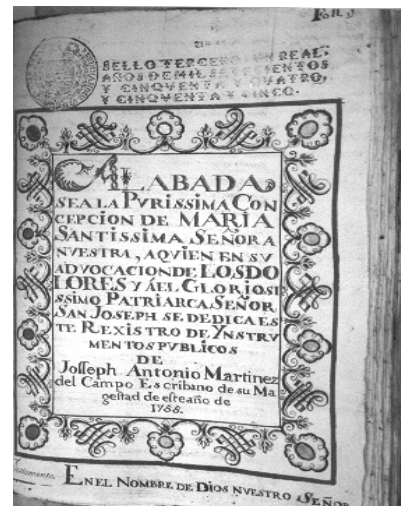 Foll.
SELLO TERCERO, UN REAL:
AÑOS DE MIL SETECIENTOS
Y CINQVENTA Y QVATRO,
Y CINQVENTA Y CINCO.
ALABADA
SEA LA PVRISSIMA CON
CEPCION DE MARIA
SANTISSIMA SEÑORA
NVESTRA, AQVIEN EN SV
ADVOCACION DE LOS DO
LORES Y ÁEL GLORIOSI
SSIMO PATRIARCA SEÑOR
SAN JOSEPH SE DEDICA ES
TE REXISTRO DE YNSTRV
MENTOS PVBLICOS
DE
Josseph Antonio Martinez
del Campo Escribano de su Ma
gestad de esteaño de
1755.
Testamento.
EN EL NOMBRE DE DIOS NVESTRO SEÑOR